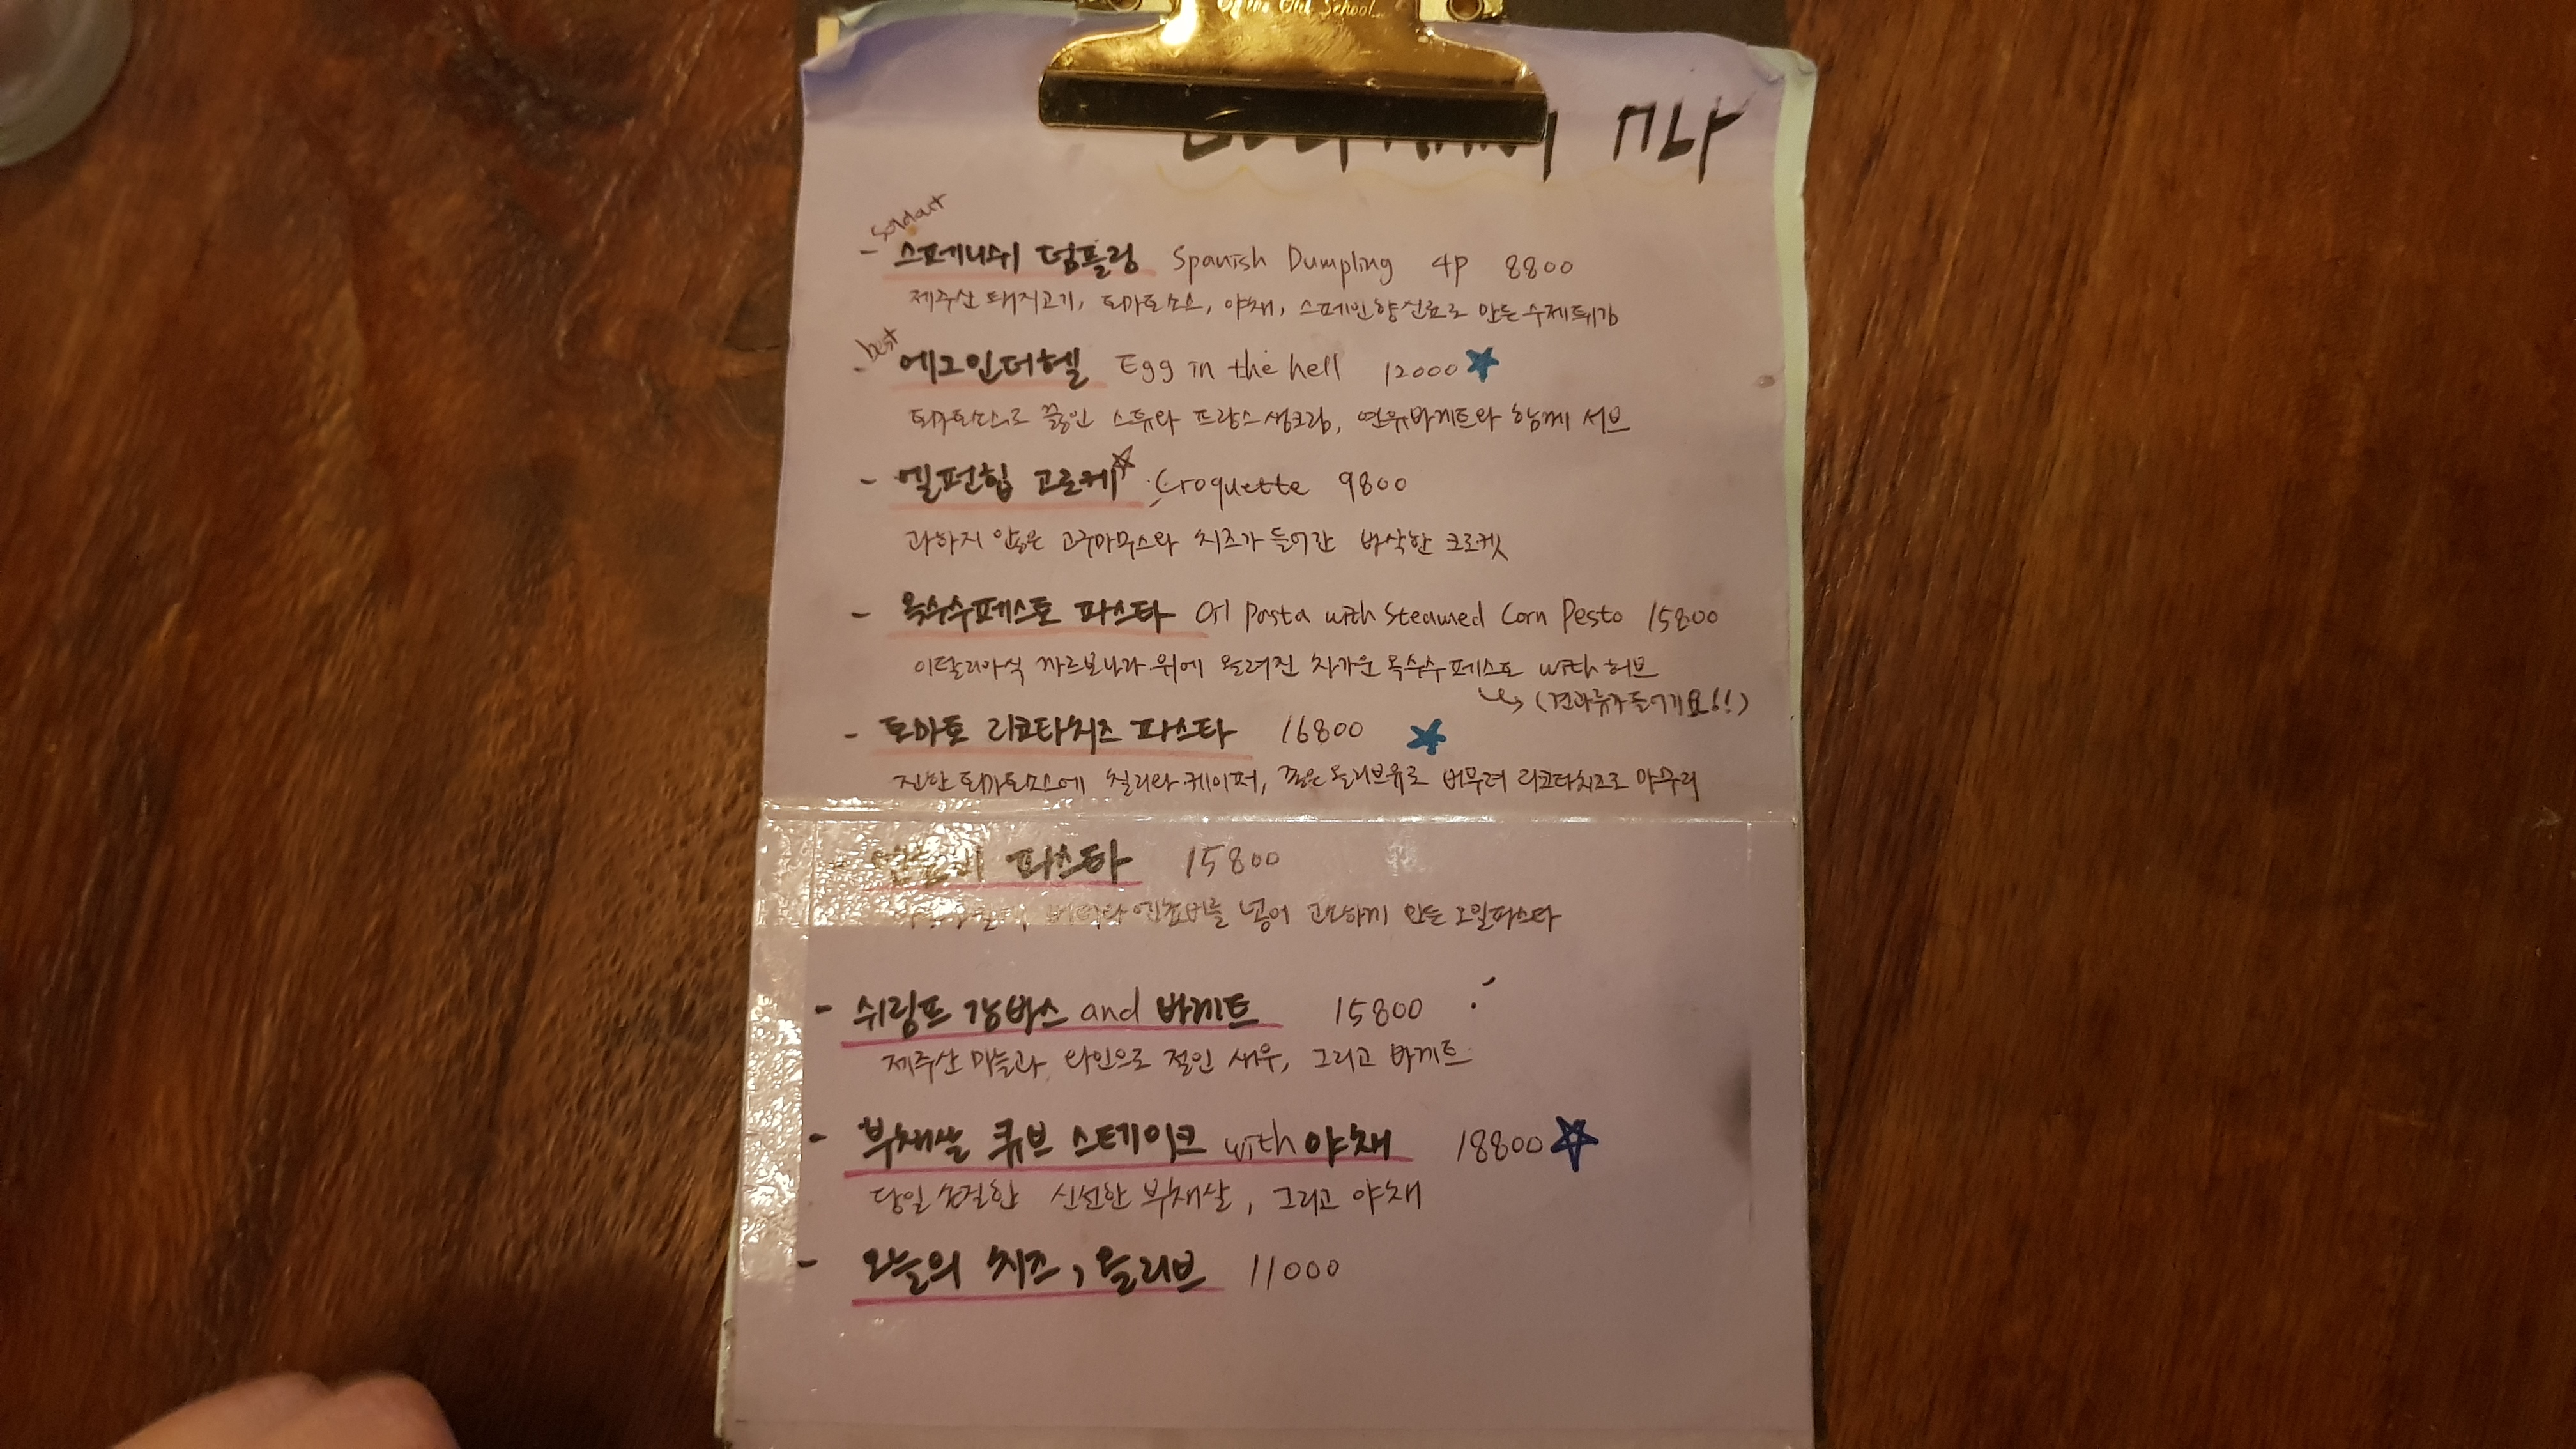 Of the Old School
soldout
- 스페니쉬 덤플링 Spanish Dumpling 4p 8800
제주산 돼지고기, 토마토소스, 야채, 스페인향신료로 만든 수제튀김
best
- 에그인더헬 Egg in the hell 12000
토마토소스로 끓인 스튜와 프랑스 생크림, 연유바게트와 함께 서브
- 엘펀힙 고로케 Croquette 9800
과하지 않은 고구마무스와 치즈가 들어간 바삭한 크로켓
- 옥수수페스토 파스타 Oil pasta with Steamed Corn Pesto 15800
이탈리아식 까르보나라 위에 올려진 차가운 옥수수페스토 with 허브
(견과류가 들어가요!!)
- 토마토 리코타치즈 파스타 16800
진한 토마토소스에 칠리와 케이퍼, 짙은 올리브유로 버무려 리코타치즈로 마무리
파스타 15800
엔쵸비를 넣어 고소하게 만든 오일파스타
- 쉬림프 감바스 and 바게트 15800
제주산 마늘과 와인으로 절인 새우, 그리고 바게트
- 부채살 큐브 스테이크 with 야채 18800
당일 손질한 신선한 부채살, 그리고 야채
- 오늘의 치즈, 올리브 11000